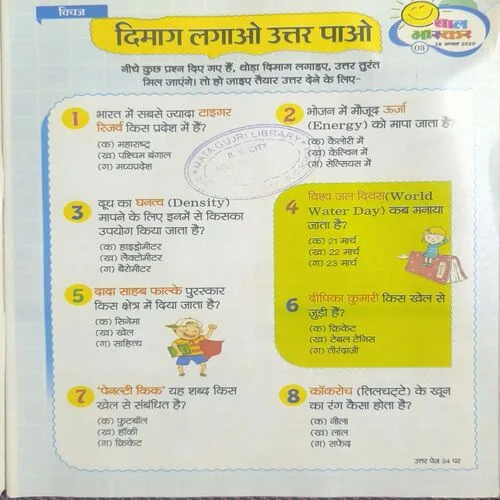 क्विज
दिमाग लगाओ उत्तर पाओ
बाल
भास्कर
03
28 अगस्त 2020
नीचे कुछ प्रश्न दिए गए हैं, थोड़ा दिमाग लगाइए, उत्तर तुरंत
मिल जाएंगे। तो हो जाइए तैयार उत्तर देने के लिए-
1 भारत में सबसे ज्यादा टाइगर
रिजर्व किस प्रदेश में हैं?
(क) महाराष्ट्र
(ख) पश्चिम बंगाल
(ग) मध्यप्रदेश
2 भोजन में मौजूद ऊर्जा
(Energy) को मापा जाता है?
(क) कैलोरी में
(ख) केल्विन में
(ग) सेल्सियस में
MATA GUJRI LIBRARY
B. S. CITY
3 दूध का घनत्व (Density)
मापने के लिए इनमें से किसका
उपयोग किया जाता है?
(क) हाइड्रोमीटर
(ख) लैक्टोमीटर
(ग) बैरोमीटर
4 विश्व जल दिवस(World
Water Day) कब मनाया
जाता है?
(क) 21 मार्च
(ख) 22 मार्च
(ग) 23 मार्च
5 दादा साहब फाल्के पुरस्कार
किस क्षेत्र में दिया जाता है?
(क) सिनेमा
(ख) खेल
(ग) साहित्य
6 दीपिका कुमारी किस खेल से
जुड़ी हैं?
(क) क्रिकेट
(ख) टेबल टेनिस
(ग) तीरंदाजी
7 'पेनल्टी किक' यह शब्द किस
खेल से संबंधित है?
(क) फुटबॉल
(ख) हॉकी
(ग) क्रिकेट
8 कॉकरोच (तिलचट्टे) के खून
का रंग कैसा होता है?
(क) नीला
(ख) लाल
(ग) सफेद
उत्तर पेज 34 पर